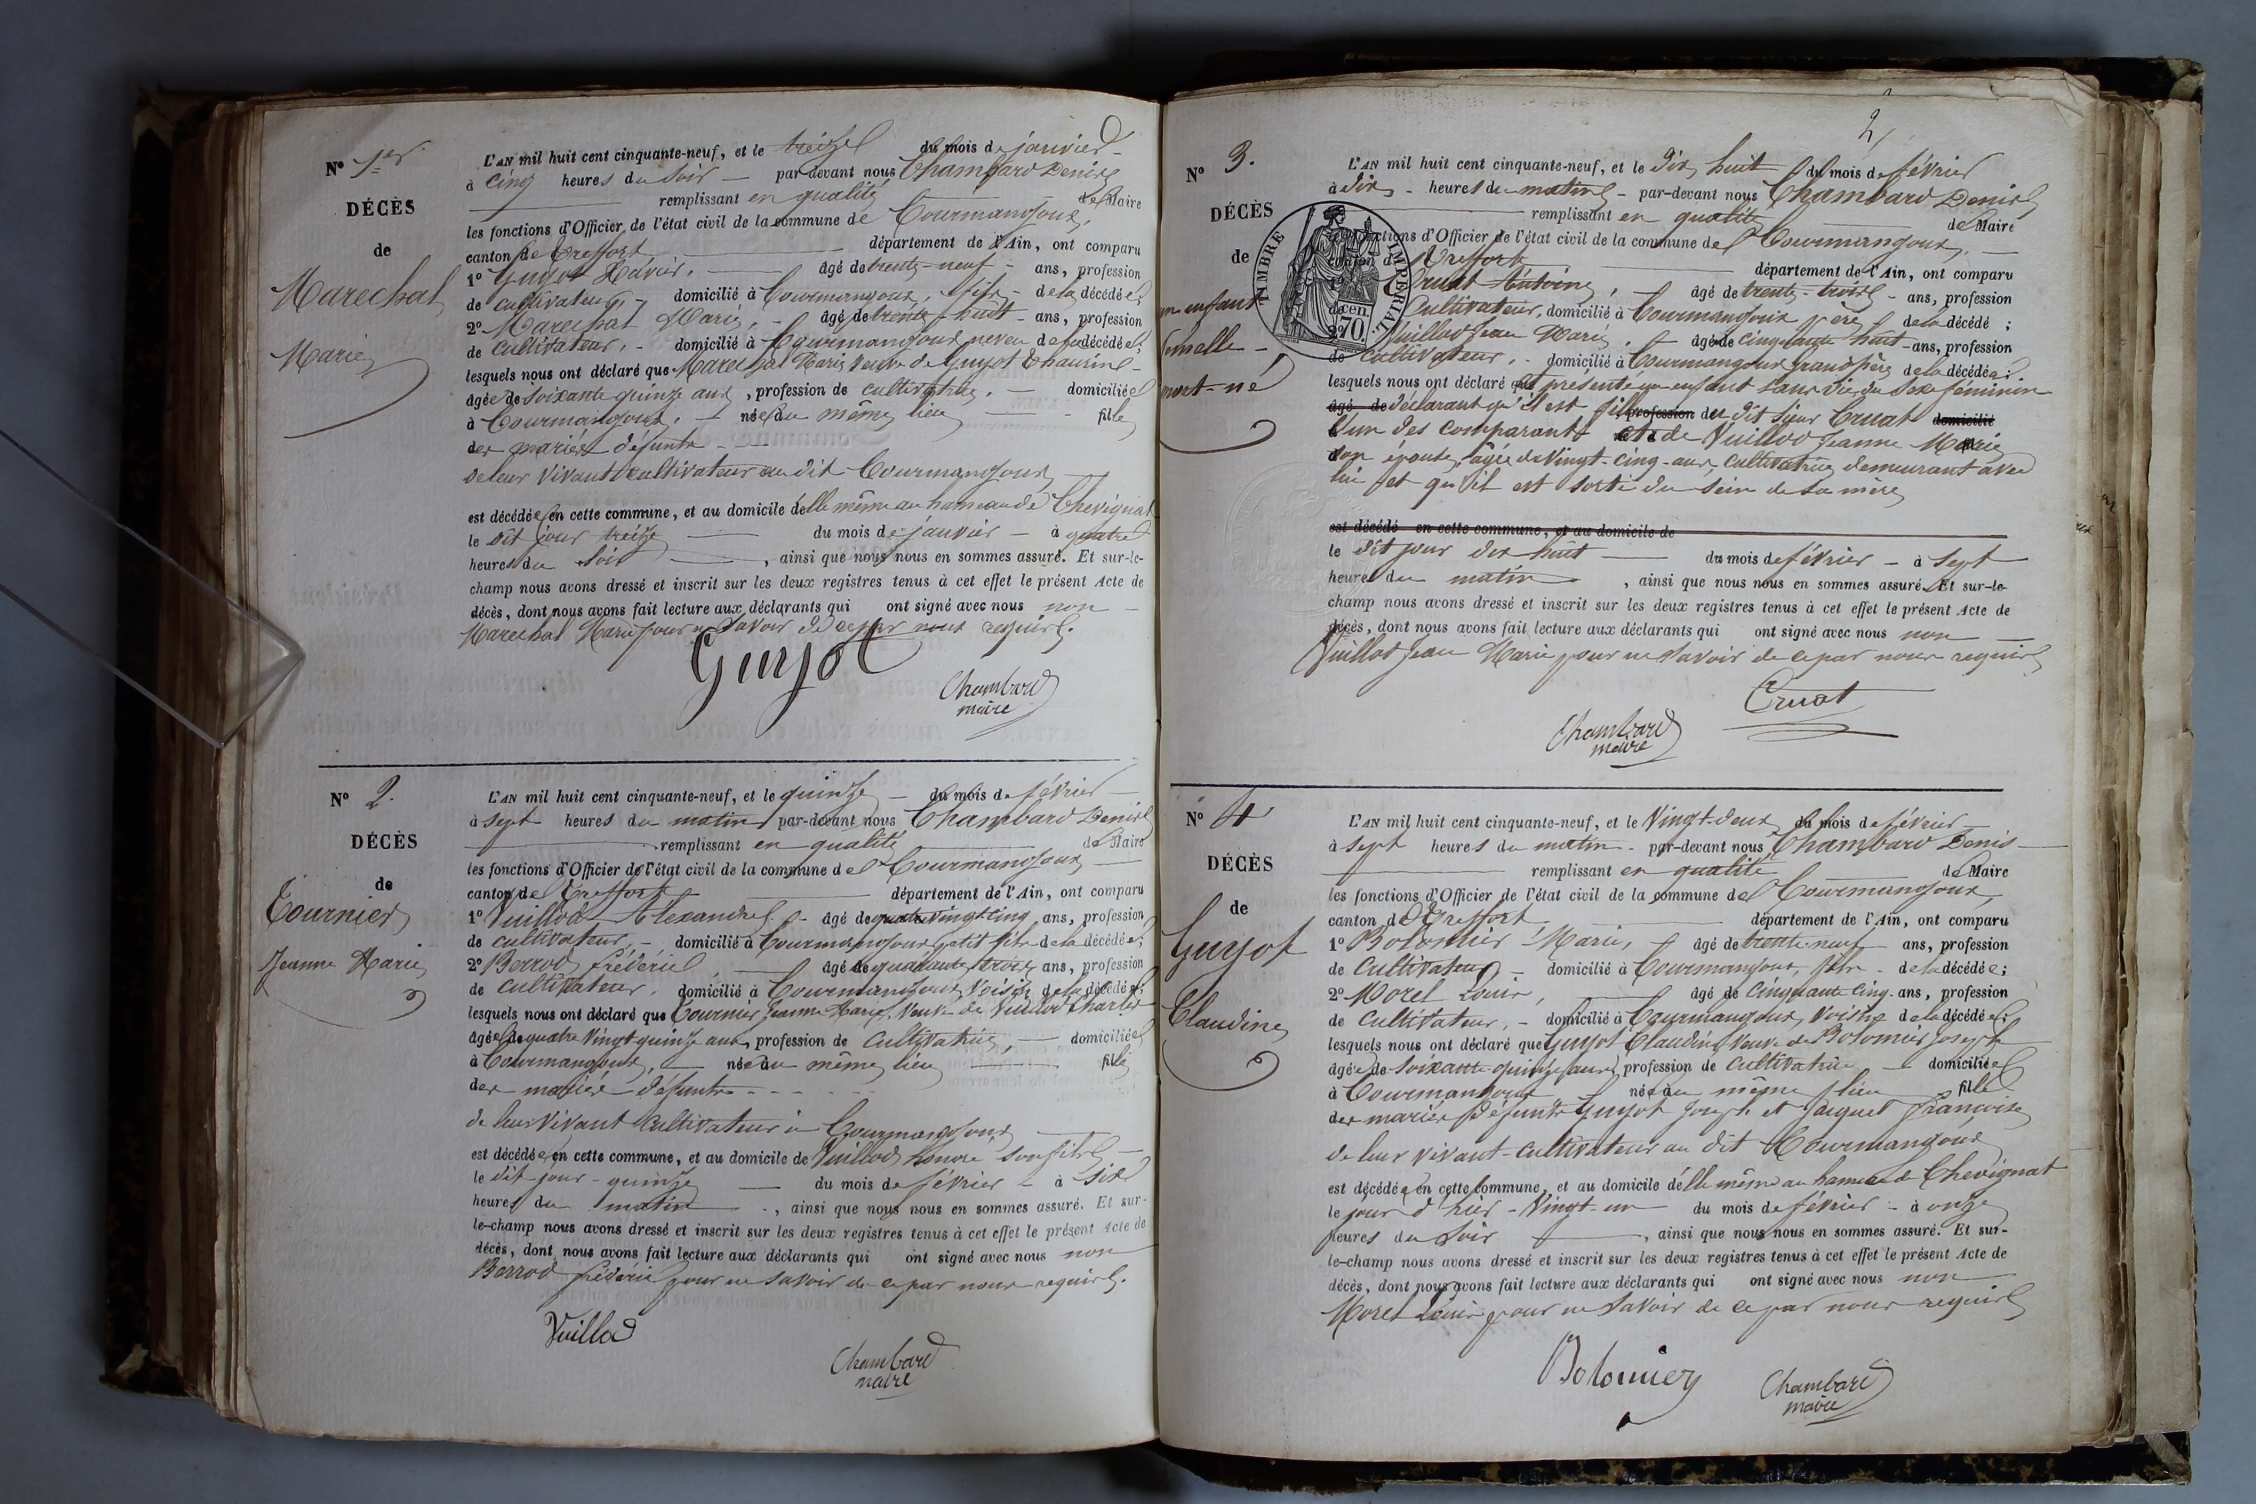 N° 1er
DÉCÈS
de
Marechal
Marie
L'AN mil huit cent cinquante-neuf, et le treize du mois de janvier
à cinq heures du soir par devant nous Chambard Denis
remplissant en qualité de Maire
les fonctions d'Officier de l'état civil de la commune de Courmangoux,
canton de Treffort département de l'Ain, ont comparu
1° Guyot Xavier, âgé de trente-neuf ans, profession
de cultivateur, domicilié à Courmangoux, fils de la décédée;
2° Marechal Marie, âgé de trente-huit ans, profession
de cultivateur, domicilié à Courmangoux neveu de la décédée;
lesquels nous ont déclaré que Marechal Marie veuve de Guyot
âgée de soixante quinze ans, profession de cultivatrice, domiciliée
à Courmangoux, née au même lieu fille
des mariés défunts
de leur vivant cultivateurs au dit Courmangoux
est décédée en cette commune, et au domicile d'elle même au hameau de Chevignat
le dit jour treize du mois de janvier à quatre
heures du soir, ainsi que nous nous en sommes assuré. Et sur-le-
champ nous avons dressé et inscrit sur les deux registres tenus à cet effet le présent Acte de
décès, dont nous avons fait lecture aux déclarants qui ont signé avec nous non
Marechal Marie pour ne savoir de ce par nous requis.
Guyot
Chambard
maire
N° 2.
DÉCÈS
de
Tournier
Jeanne Marie
L'AN mil huit cent cinquante-neuf, et le quinze du mois de février
à sept heures du matin par-devant nous Chambard Denis
remplissant en qualité de Maire
les fonctions d'Officier de l'état civil de la commune de Courmangoux
canton de Treffort département de l'Ain, ont comparu
1° Vuillod Alexandre âgé de vingt cinq ans, profession
de cultivateur, domicilié à Courmangoux petit fils de la décédée;
2° Berrod fréderic âgé de quarante trois ans, profession
de cultivateur, domicilié à Courmangoux voisin de la décédée;
lesquels nous ont déclaré que Tournier Jeanne Marie, veuve de Vuillod Charles
âgée de quatre vingt quinze ans, profession de cultivatrice, domiciliée
à Courmangoux, née au même lieu fille
des mariés défunts
de leur vivant cultivateurs à Courmangoux
est décédée en cette commune, et au domicile de Vuillod honoré son fils
le dit jour quinze du mois de février à six
heures du matin, ainsi que nous nous en sommes assuré. Et sur-
le-champ nous avons dressé et inscrit sur les deux registres tenus à cet effet le présent Acte de
décès, dont nous avons fait lecture aux déclarants qui ont signé avec nous non
Berrod fréderic pour ne savoir de ce par nous requis.
Vuillod
Chambard
maire
2
N° 3.
DÉCÈS
de
un enfant
femelle
mort-né
TIMBRE IMPERIAL
cen.
70.
L'AN mil huit cent cinquante-neuf, et le dix huit du mois de février
à dix heures du matin par-devant nous Chambard Denis
remplissant en qualité de Maire
les fonctions d'Officier de l'état civil de la commune de Courmangoux,
canton de Treffort département de l'Ain, ont comparu
1° Cruat Antoine, âgé de trente-trois ans, profession
de Cultivateur, domicilié à Courmangoux père de la décédé;
2° Vuillod Jean Marie, âgé de cinquante huit ans, profession
de cultivateur, domicilié à Courmangoux Grand père de la décédée;
lesquels nous ont déclaré présenté un enfant sans vie du sexe féminin
âgé de déclarant qu'il est fille profession du dit sieur Cruat domicilié
l'un des comparants et de Vuillod Jeanne Marie
son épouse, âgée de vingt-cinq ans, cultivatrice demeurant avec
lui et qu'il est sorti du sein de sa mère
est décédé en cette commune, et au domicile de
le dit jour dix huit du mois de février à sept
heures du matin, ainsi que nous nous en sommes assuré. Et sur-le-
champ nous avons dressé et inscrit sur les deux registres tenus à cet effet le présent Acte de
décès, dont nous avons fait lecture aux déclarants qui ont signé avec nous non
Vuillod Jean Marie pour ne savoir de ce par nous requis
Cruat
Chambard
maire
N° 4
DÉCÈS
de
Guyot
Claudine
L'AN mil huit cent cinquante-neuf, et le vingt-deux du mois de février
à sept heures du matin par-devant nous Chambard Denis
remplissant en qualité de Maire
les fonctions d'Officier de l'état civil de la commune de Courmangoux,
canton de Treffort département de l'Ain, ont comparu
1° Bolomier Marie, âgé de trente neuf ans, profession
de cultivateur domicilié à Courmangoux, fils de la décédée;
2° Morel Louis, âgé de cinquante cinq ans, profession
de cultivateur, domicilié à Courmangoux, voisin de la décédée;
lesquels nous ont déclaré que Guyot Claudine veuve de Bolomier Joseph
âgée de soixante quinze ans, profession de cultivatrice domiciliée
à Courmangoux née au même lieu fille
des mariés défunts Guyot Joseph et Paquet françoise
de leur vivant cultivateurs au dit Courmangoux
est décédée en cette commune, et au domicile d'elle même au hameau de Chevignat
le jour d'hier vingt-un du mois de février à onze
heures du soir, ainsi que nous nous en sommes assuré. Et sur-
le-champ nous avons dressé et inscrit sur les deux registres tenus à cet effet le présent Acte de
décès, dont nous avons fait lecture aux déclarants qui ont signé avec nous non
Morel Louis pour ne savoir de ce par nous requis
Bolomier
Chambard
maire